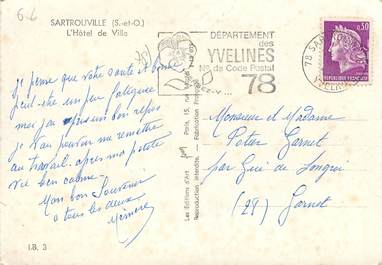 6-6
SARTROUVILLE (S.-et-O.)
L'Hôtel de Ville
DÉPARTEMENT
des
YVELINES
No de Code Postal
78
0,50
RÉPUBLIQUE FRANÇAISE
78 SARTROU
YVELINES
je pense que votre santé est bonne
peut-être un peu fatiguée
moi j'ai pris un bon repos
je vais pouvoir me remettre
au travail. après ma petite
vie bien calme.
Mon bon Souvenir
à tous les deux
Les Editions d'Art
Paris, 15, rue
Reproduction interdite. - Fabrication Française
Monsieur et Madame
Garnet
par Gué de Longroi
(28) Garnet
I.B. 3